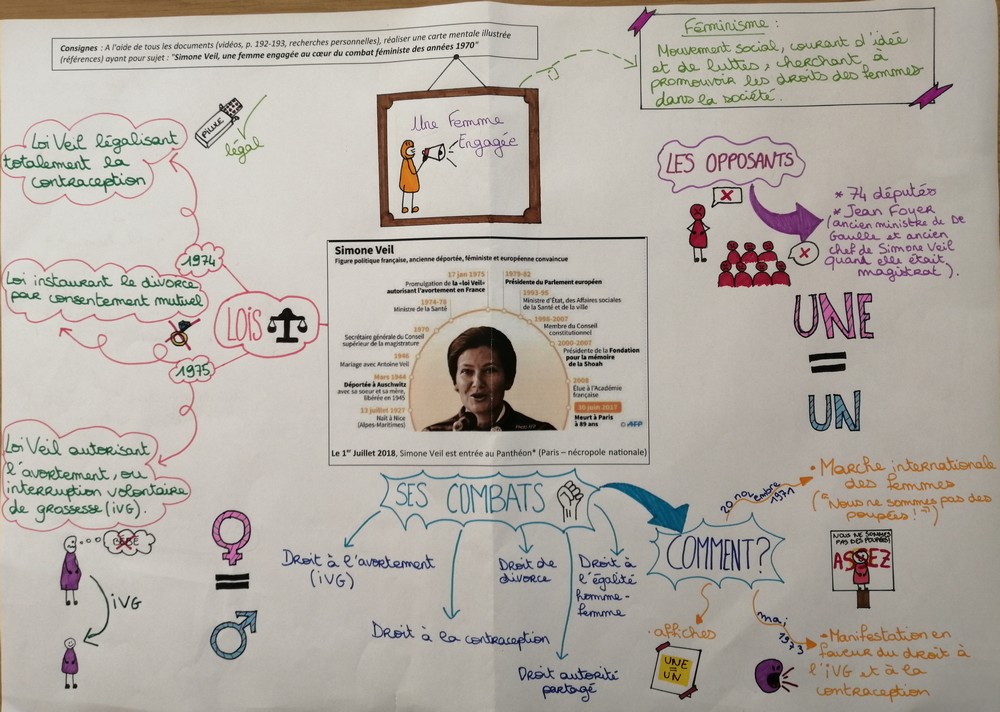 Consignes : A l'aide de tous les documents (vidéos, p. 192-193, recherches personnelles), réaliser une carte mentale illustrée
(références) ayant pour sujet : "Simone Veil, une femme engagée au cœur du combat féministe des années 1970"
Féminisme :
Mouvement social, courant d'idée
et de luttes, cherchant à
promouvoir les droits des femmes
dans la société.
Une Femme
Engagée
PILULE
légal
Loi Veil légalisant
totalement la
contraception
1974
Loi instaurant le divorce
par consentement mutuel
LOIS
1975
Loi Veil autorisant
l'avortement, ou
interruption volontaire
de grossesse (iVG).
BÉBÉ
iVG
LES OPPOSANTS
* 74 députés
* Jean Foyer
(ancien ministre de De
Gaulle et ancien
chef de Simone Veil
quand elle était
magistrat).
UNE
=
UN
Simone Veil
Figure politique française, ancienne déportée, féministe et européenne convaincue
17 jan 1975
Promulgation de la «loi Veil»
autorisant l'avortement en France
1974-79
Ministre de la Santé
1970
Secrétaire générale du Conseil
supérieur de la magistrature
1946
Mariage avec Antoine Veil
Mars 1944
Déportée à Auschwitz
avec sa soeur et sa mère,
libérée en 1945
13 juillet 1927
Naît à Nice
(Alpes-Maritimes)
1979-82
Présidente du Parlement européen
1993-95
Ministre d'État, des Affaires sociales
de la Santé et de la ville
1998-2007
Membre du Conseil
constitutionnel
2000-2007
Présidente de la Fondation
pour la mémoire
de la Shoah
2008
Élue à l'Académie
française
30 juin 2017
Meurt à Paris
à 89 ans
© AFP
Le 1er Juillet 2018, Simone Veil est entrée au Panthéon* (Paris – nécropole nationale)
SES COMBATS
Droit à l'avortement
(iVG)
Droit à la contraception
Droit de
divorce
Droit autorité
partagé
Droit à
l'égalité
homme-
femme
COMMENT?
20 novembre
1971
• Marche internationale
des femmes
("Nous ne sommes pas des
poupées!")
NOUS NE SOMMES
PAS DES POUPÉES!
ASSEZ
• affiches
UNE
=UN
mai
1973
• Manifestation en
faveur du droit à
l'iVG et à la
contraception